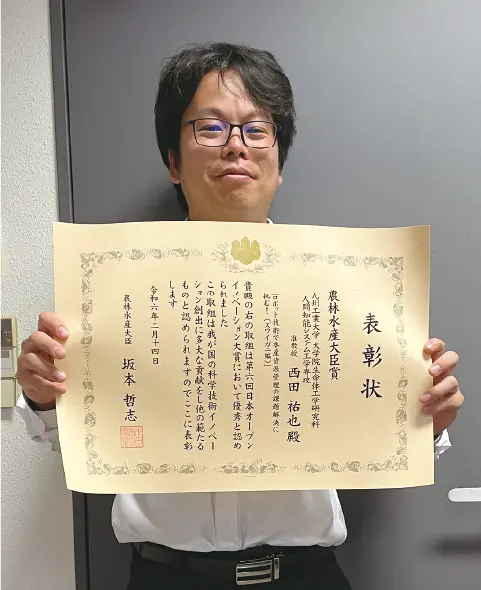 表彰状
農林水産大臣賞
九州工業大学 大学院生命体工学研究科
人間知能システム工学専攻
准教授 西田 祐也 殿
ロボット技術で水産資源管理の課題解決に
挑む!(ズワイガニ編)
貴殿の右の取組は第六回日本オープン
イノベーション大賞において優秀と認め
られました
この取組は我が国の科学技術イノベー
ション創出に多大な貢献をし他の範たる
ものと認められますのでここに表彰
します
令和六年二月十四日
農林水産大臣 坂本 哲志